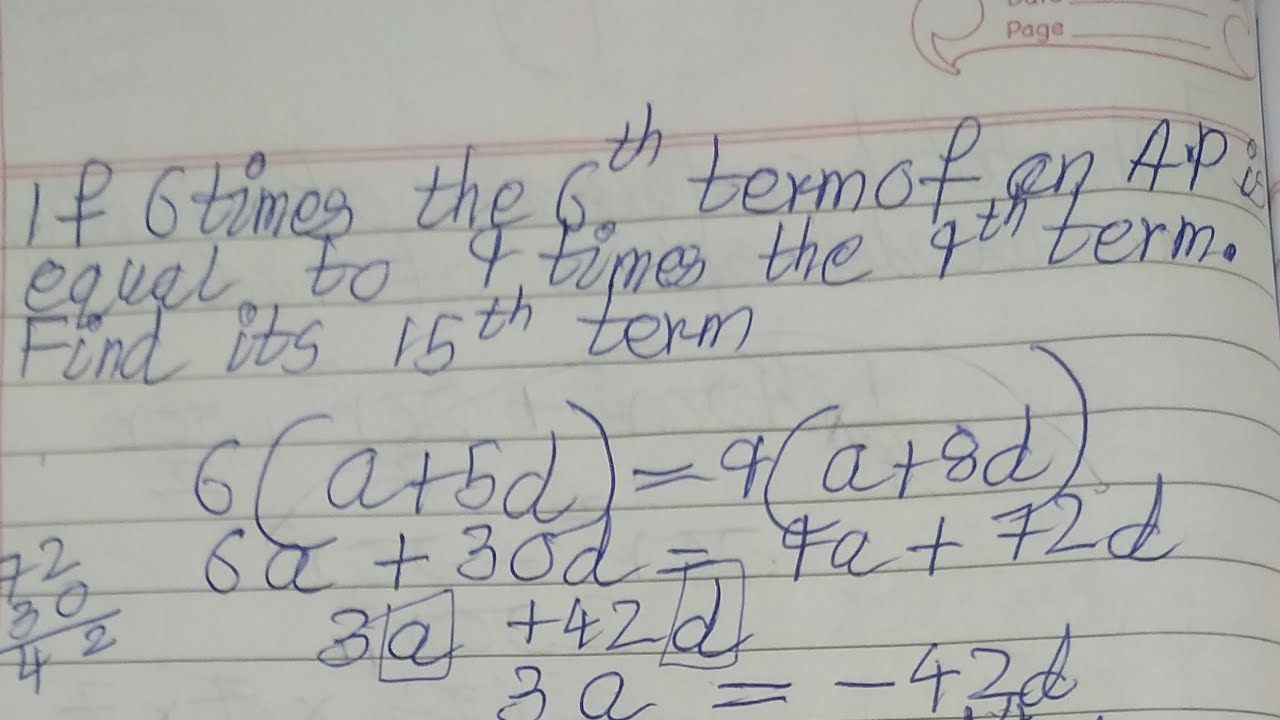 Page
If 6 times the 6th term of an AP is
equal to 9 times the 9th term.
Find its 15th term
6(a+5d)=9(a+8d)
6a + 30d = 9a + 72d
72
30
42
3a +42d
3a = -42d